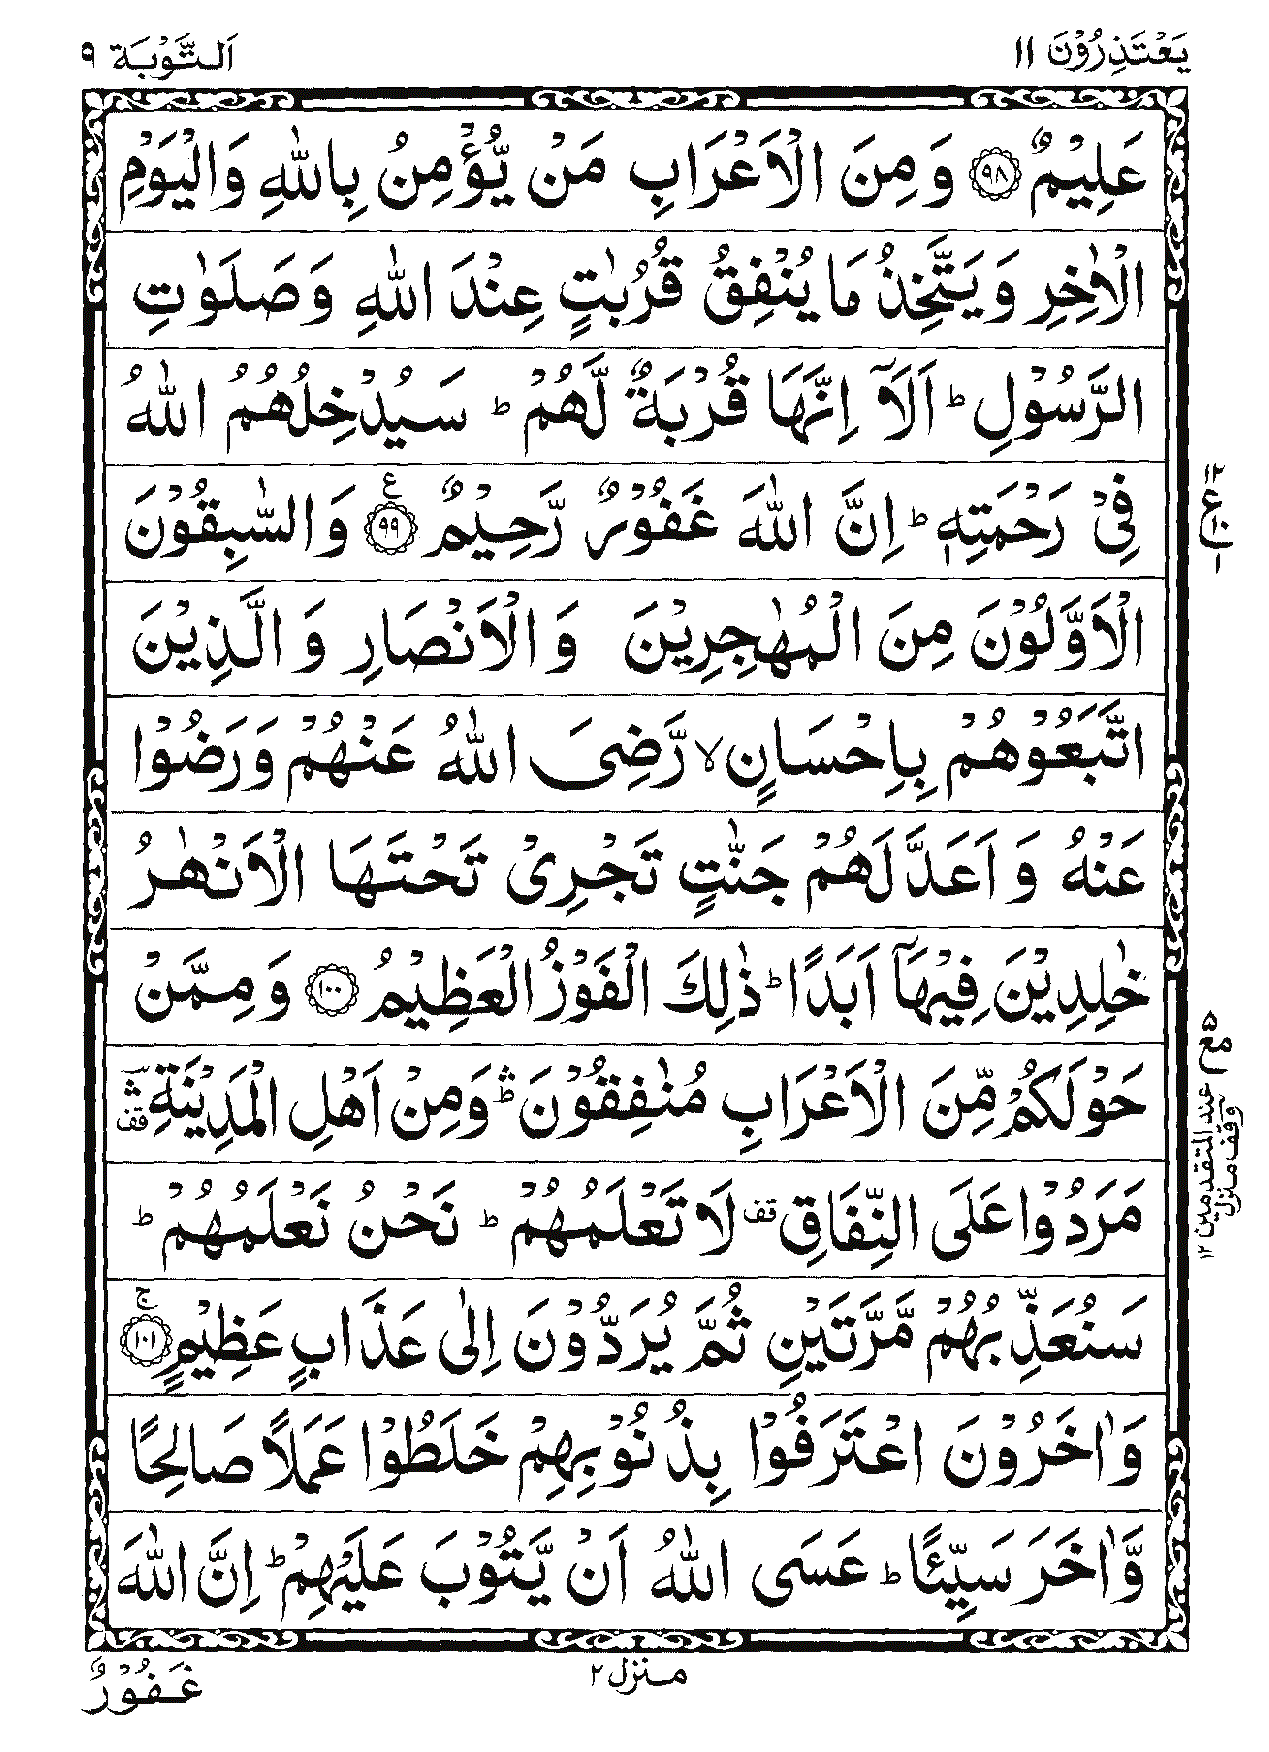 يَعْتَذِرُوْنَ ١١
اَلتَّوْبَة ٩
عَلِيْمٌ ﴿٩٨﴾ وَمِنَ الْاَعْرَابِ مَنْ يُّؤْمِنُ بِاللّٰهِ وَالْيَوْمِ
الْاٰخِرِ وَيَتَّخِذُ مَا يُنْفِقُ قُرُبٰتٍ عِنْدَ اللّٰهِ وَصَلَوٰتِ
الرَّسُوْلِ ؕ اَلَاۤ اِنَّهَا قُرْبَةٌ لَّهُمْ ؕ سَيُدْخِلُهُمُ اللّٰهُ
فِىْ رَحْمَتِهٖ ؕ اِنَّ اللّٰهَ غَفُوْرٌ رَّحِيْمٌ ﴿٩٩﴾ ع وَالسّٰبِقُوْنَ
١٢
ع
١٠
١
الْاَوَّلُوْنَ مِنَ الْمُهٰجِرِيْنَ وَالْاَنْصَارِ وَالَّذِيْنَ
اتَّبَعُوْهُمْ بِاِحْسَانٍ ۙ رَّضِىَ اللّٰهُ عَنْهُمْ وَرَضُوْا
عَنْهُ وَاَعَدَّ لَهُمْ جَنّٰتٍ تَجْرِىْ تَحْتَهَا الْاَنْهٰرُ
خٰلِدِيْنَ فِيْهَاۤ اَبَدًا ؕ ذٰلِكَ الْفَوْزُ الْعَظِيْمُ ﴿١٠٠﴾ وَمِمَّنْ
حَوْلَكُمْ مِّنَ الْاَعْرَابِ مُنٰفِقُوْنَ ۛؕ وَمِنْ اَهْلِ الْمَدِيْنَةِ ۛ قف
٥
مع
عند المتقدمين ١٢
وقف منزل
مَرَدُوْا عَلَى النِّفَاقِ قف لَا تَعْلَمُهُمْ ؕ نَحْنُ نَعْلَمُهُمْ ؕ
سَنُعَذِّبُهُمْ مَّرَّتَيْنِ ثُمَّ يُرَدُّوْنَ اِلٰى عَذَابٍ عَظِيْمٍ ﴿١٠١﴾ ج
وَاٰخَرُوْنَ اعْتَرَفُوْا بِذُنُوْبِهِمْ خَلَطُوْا عَمَلًا صَالِحًا
وَّاٰخَرَ سَيِّئًا ؕ عَسَى اللّٰهُ اَنْ يَّتُوْبَ عَلَيْهِمْ ؕ اِنَّ اللّٰهَ
منزل ٢
غَفُوْرٌ